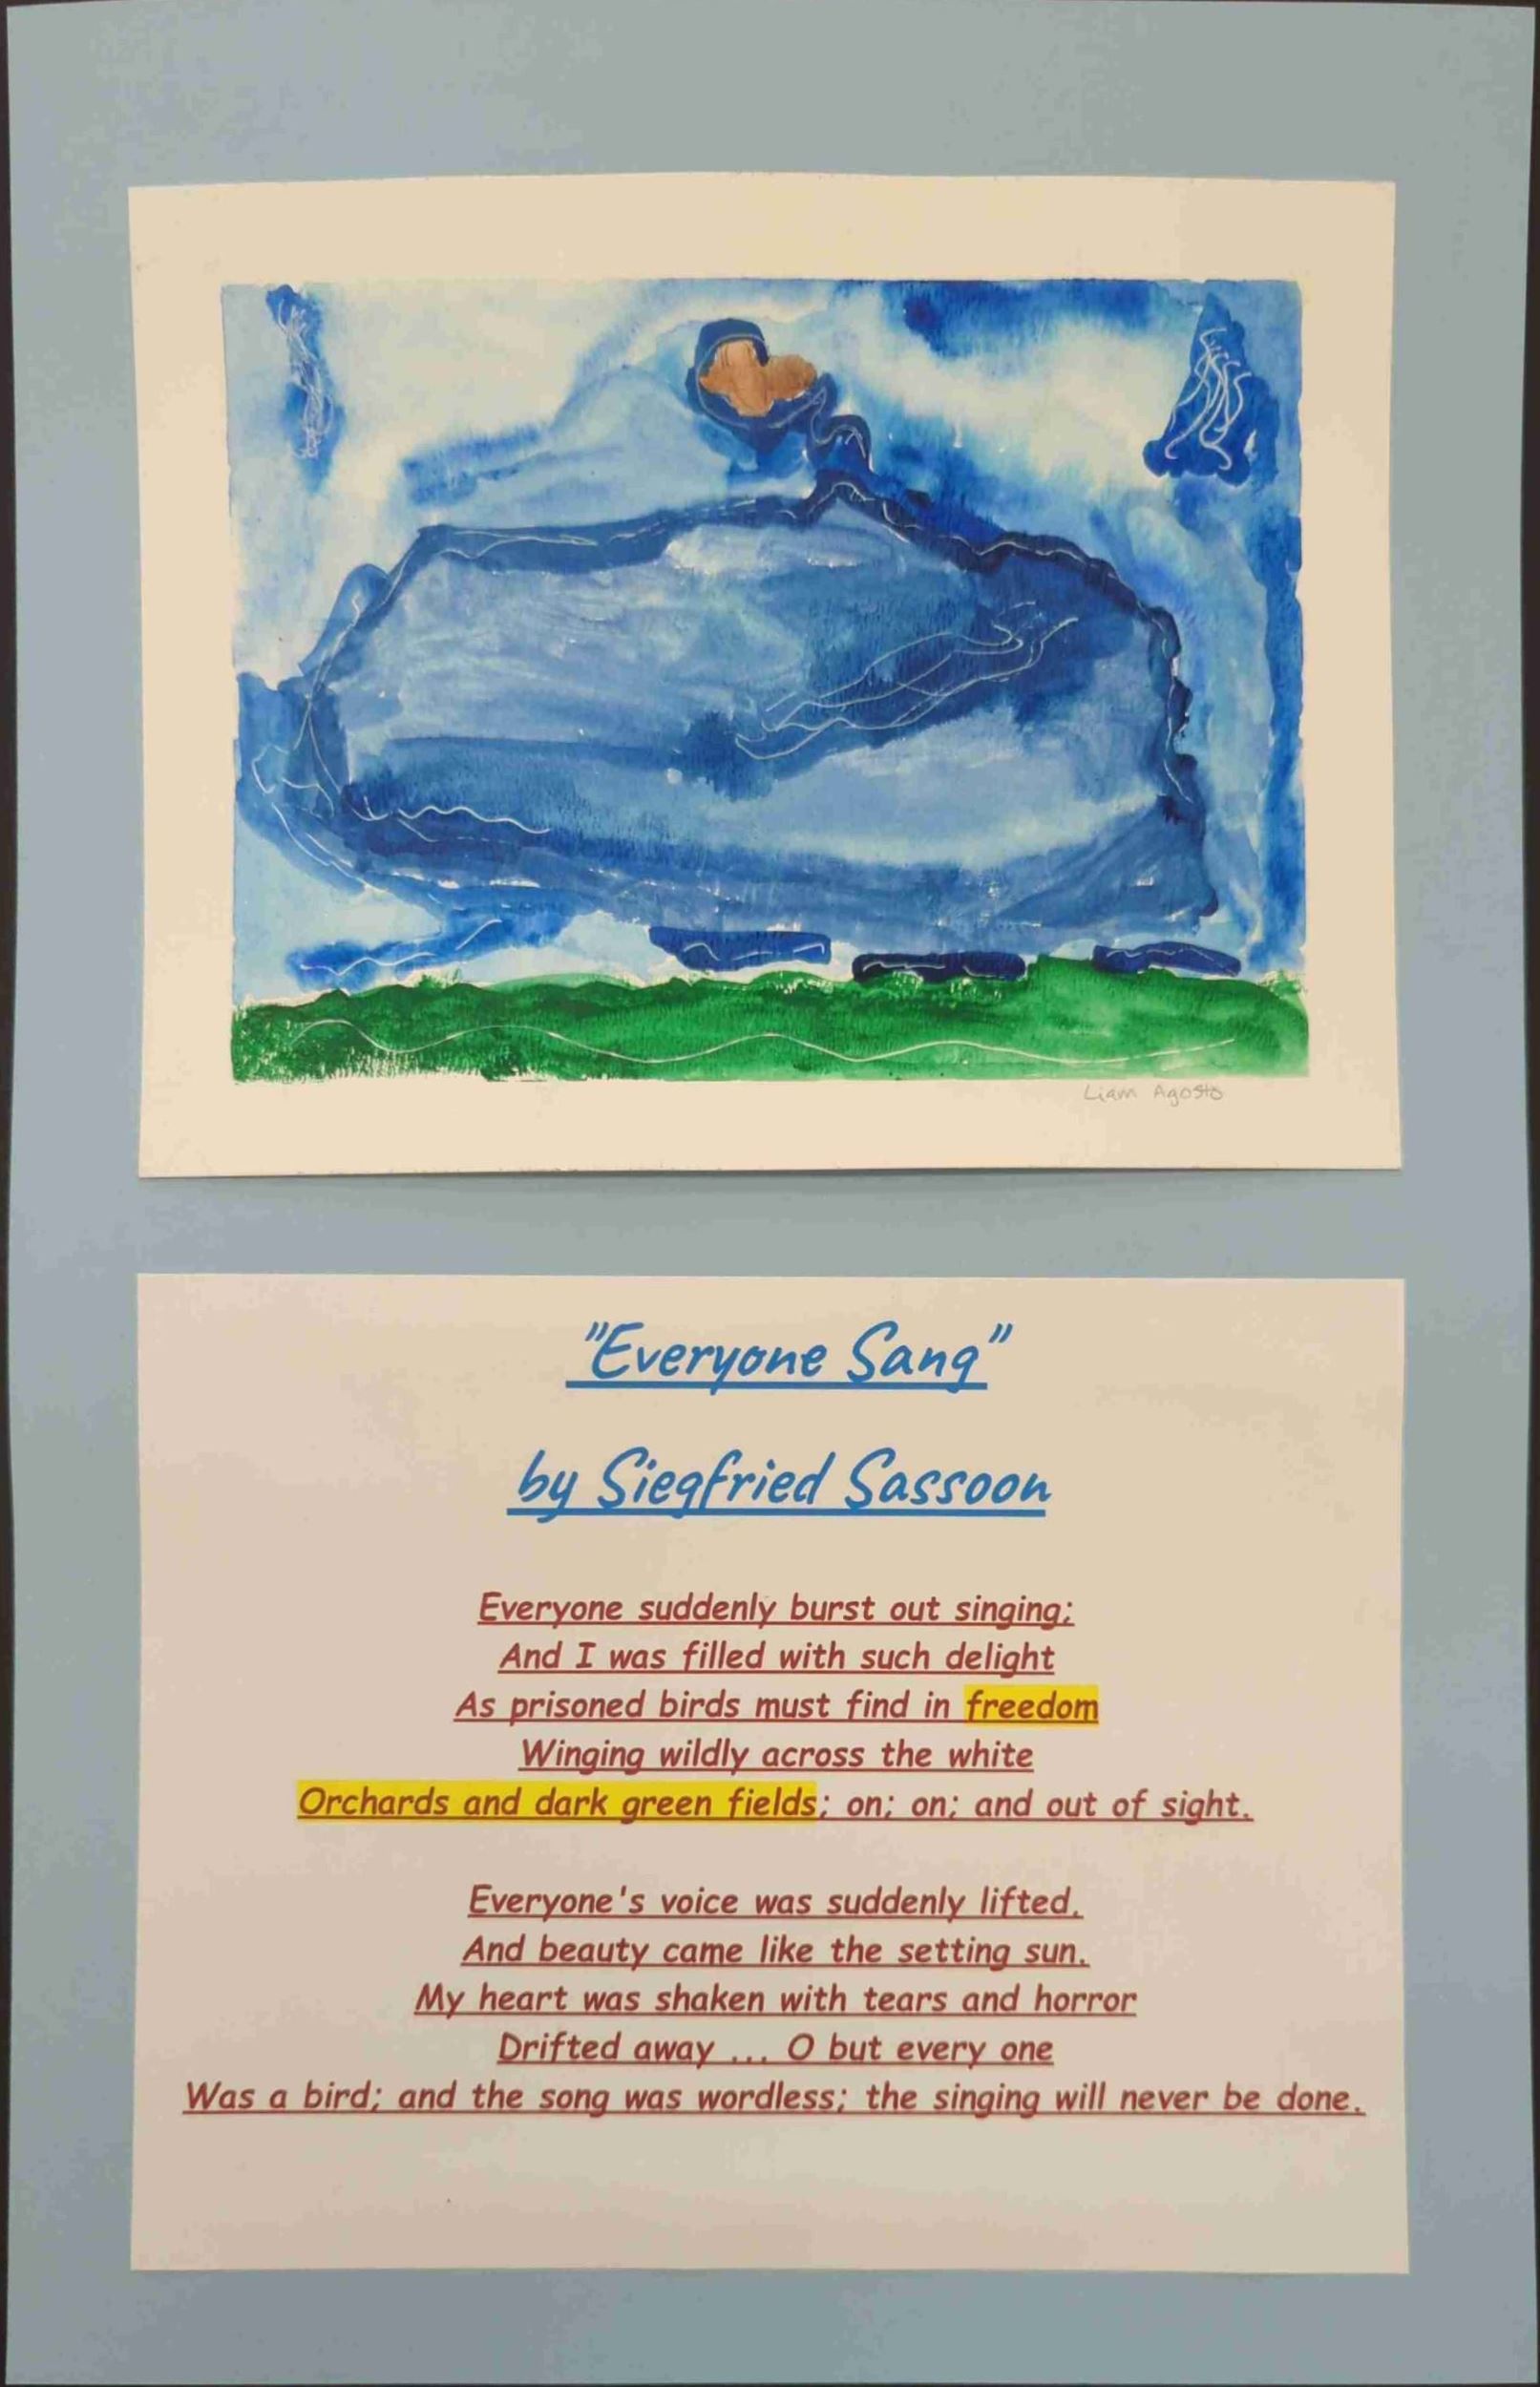 Liam Agosto
"Everyone Sang"
by Siegfried Sassoon
Everyone suddenly burst out singing;
And I was filled with such delight
As prisoned birds must find in freedom
Winging wildly across the white
Orchards and dark green fields; on; on; and out of sight.
Everyone's voice was suddenly lifted,
And beauty came like the setting sun.
My heart was shaken with tears and horror
Drifted away ... O but every one
Was a bird; and the song was wordless; the singing will never be done.